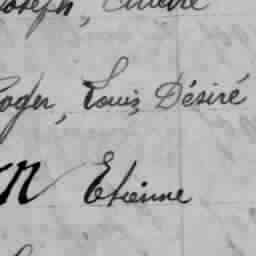 Joseph,
Roger, Louis, Désiré
Etienne